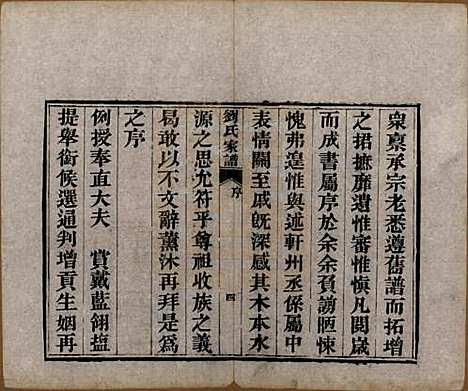 稟稟承宗老悉遵舊譜而拓增
之捃摭靡遺惟審惟愼凡閱歲
而成書屬序於余余負謗恒悚
愧弗遑惟與述軒州丞係屬中
表情關至戚旣深感其木本水
劉氏家譜 序 四
源之思尤符乎尊祖收族之義
曷敢以不文辭薰沐再拜是爲
之序
例授奉直大夫 賞戴藍翎鹽
提舉銜候選通判增貢生姻再